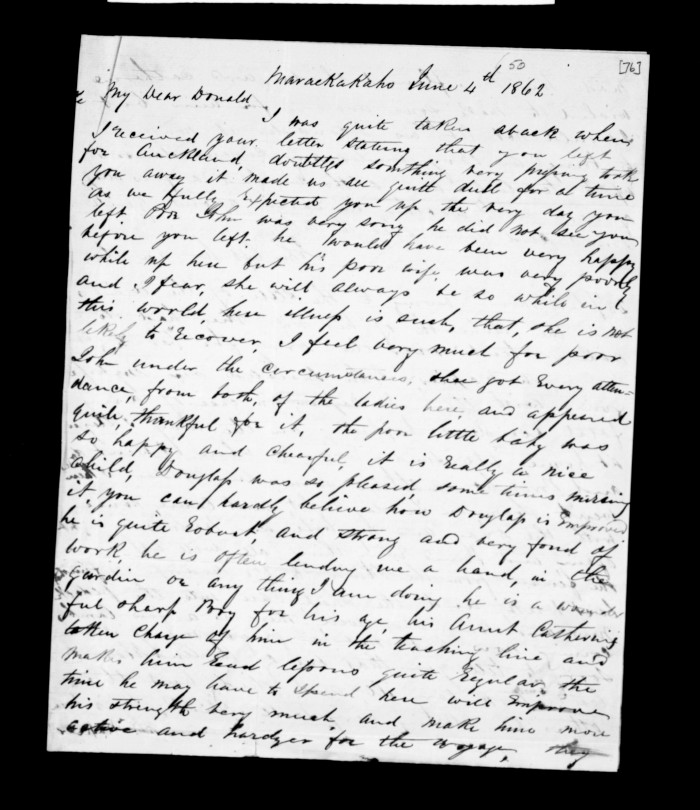 50
[76]
Maraekakaho June 4th 1862
My Dear Donald
I was quite taken aback when
I received your letter stating that you left
for Auckland, doubtless something very pressing took
you away it made us all quite dull for a time
as we fully Expected you up the very day you
left. Poor John was very sorry he did not see you
before you left. he would have been very happy
while up here but his poor wife was very poorly
and I fear, she will always be so while in
this world, here illness is such, that, she is not
likely to Recover, I feel very much for poor
John under the circumstances, she got Every atten=
dance, from both, of the ladies here and appeared
quite, thankful for it, the poor little baby was
so happy and chearful, it is Really a nice
child, Douglass was so pleased, some times nursing
it, you can hardly believe how Douglass is improved
he is quite Robust, and strong and very fond of
work, he is often lending me a hand, in the
garden or any thing I am doing he is a wonder
ful sharp Boy for his age, his Aunt Catherine
taken charge of him in the teaching line and
makes him Read lessons quite Regular, the
time he may have to spend here will improve
his strength very much, and make him more
active and hardyer for the voyage, they